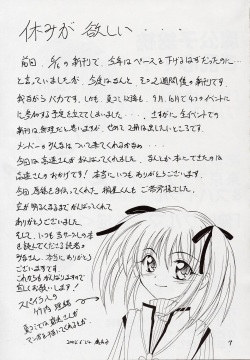 休みが欲しい・・・・
前回、5/6の新刊で、今年はペースを下げるはずだったのに…
と言っていましたが、今度はなんと、その2週間後の新刊です。
我ながらバカです。しかも、夏コミ以後も、9月、10月で4つのイベント
に参加する予定を立ててしまった・・・・。さすがに全イベントで
の新刊は無理だと思いますが、せめて2冊は出したいところです。
メンバーのみんなはついて来てくれるかなぁ・・・
今回は高遠さんががんばってくれました。
高遠さんのおかげです!本当に、いつもありがとうございます。
今回、原稿を手伝ってくれた、桐生くんもご苦労様でした。
空が明るくなるまでがんばってくれて
ありがとうございました。
そして、いつも当サークルの本
を読んでくださる読者の
皆さん、本当にありがとう
ございます
これからもがんばりますので
宜しくお願いします!
スパイラルの
竹内理緒
夏コミでは
7